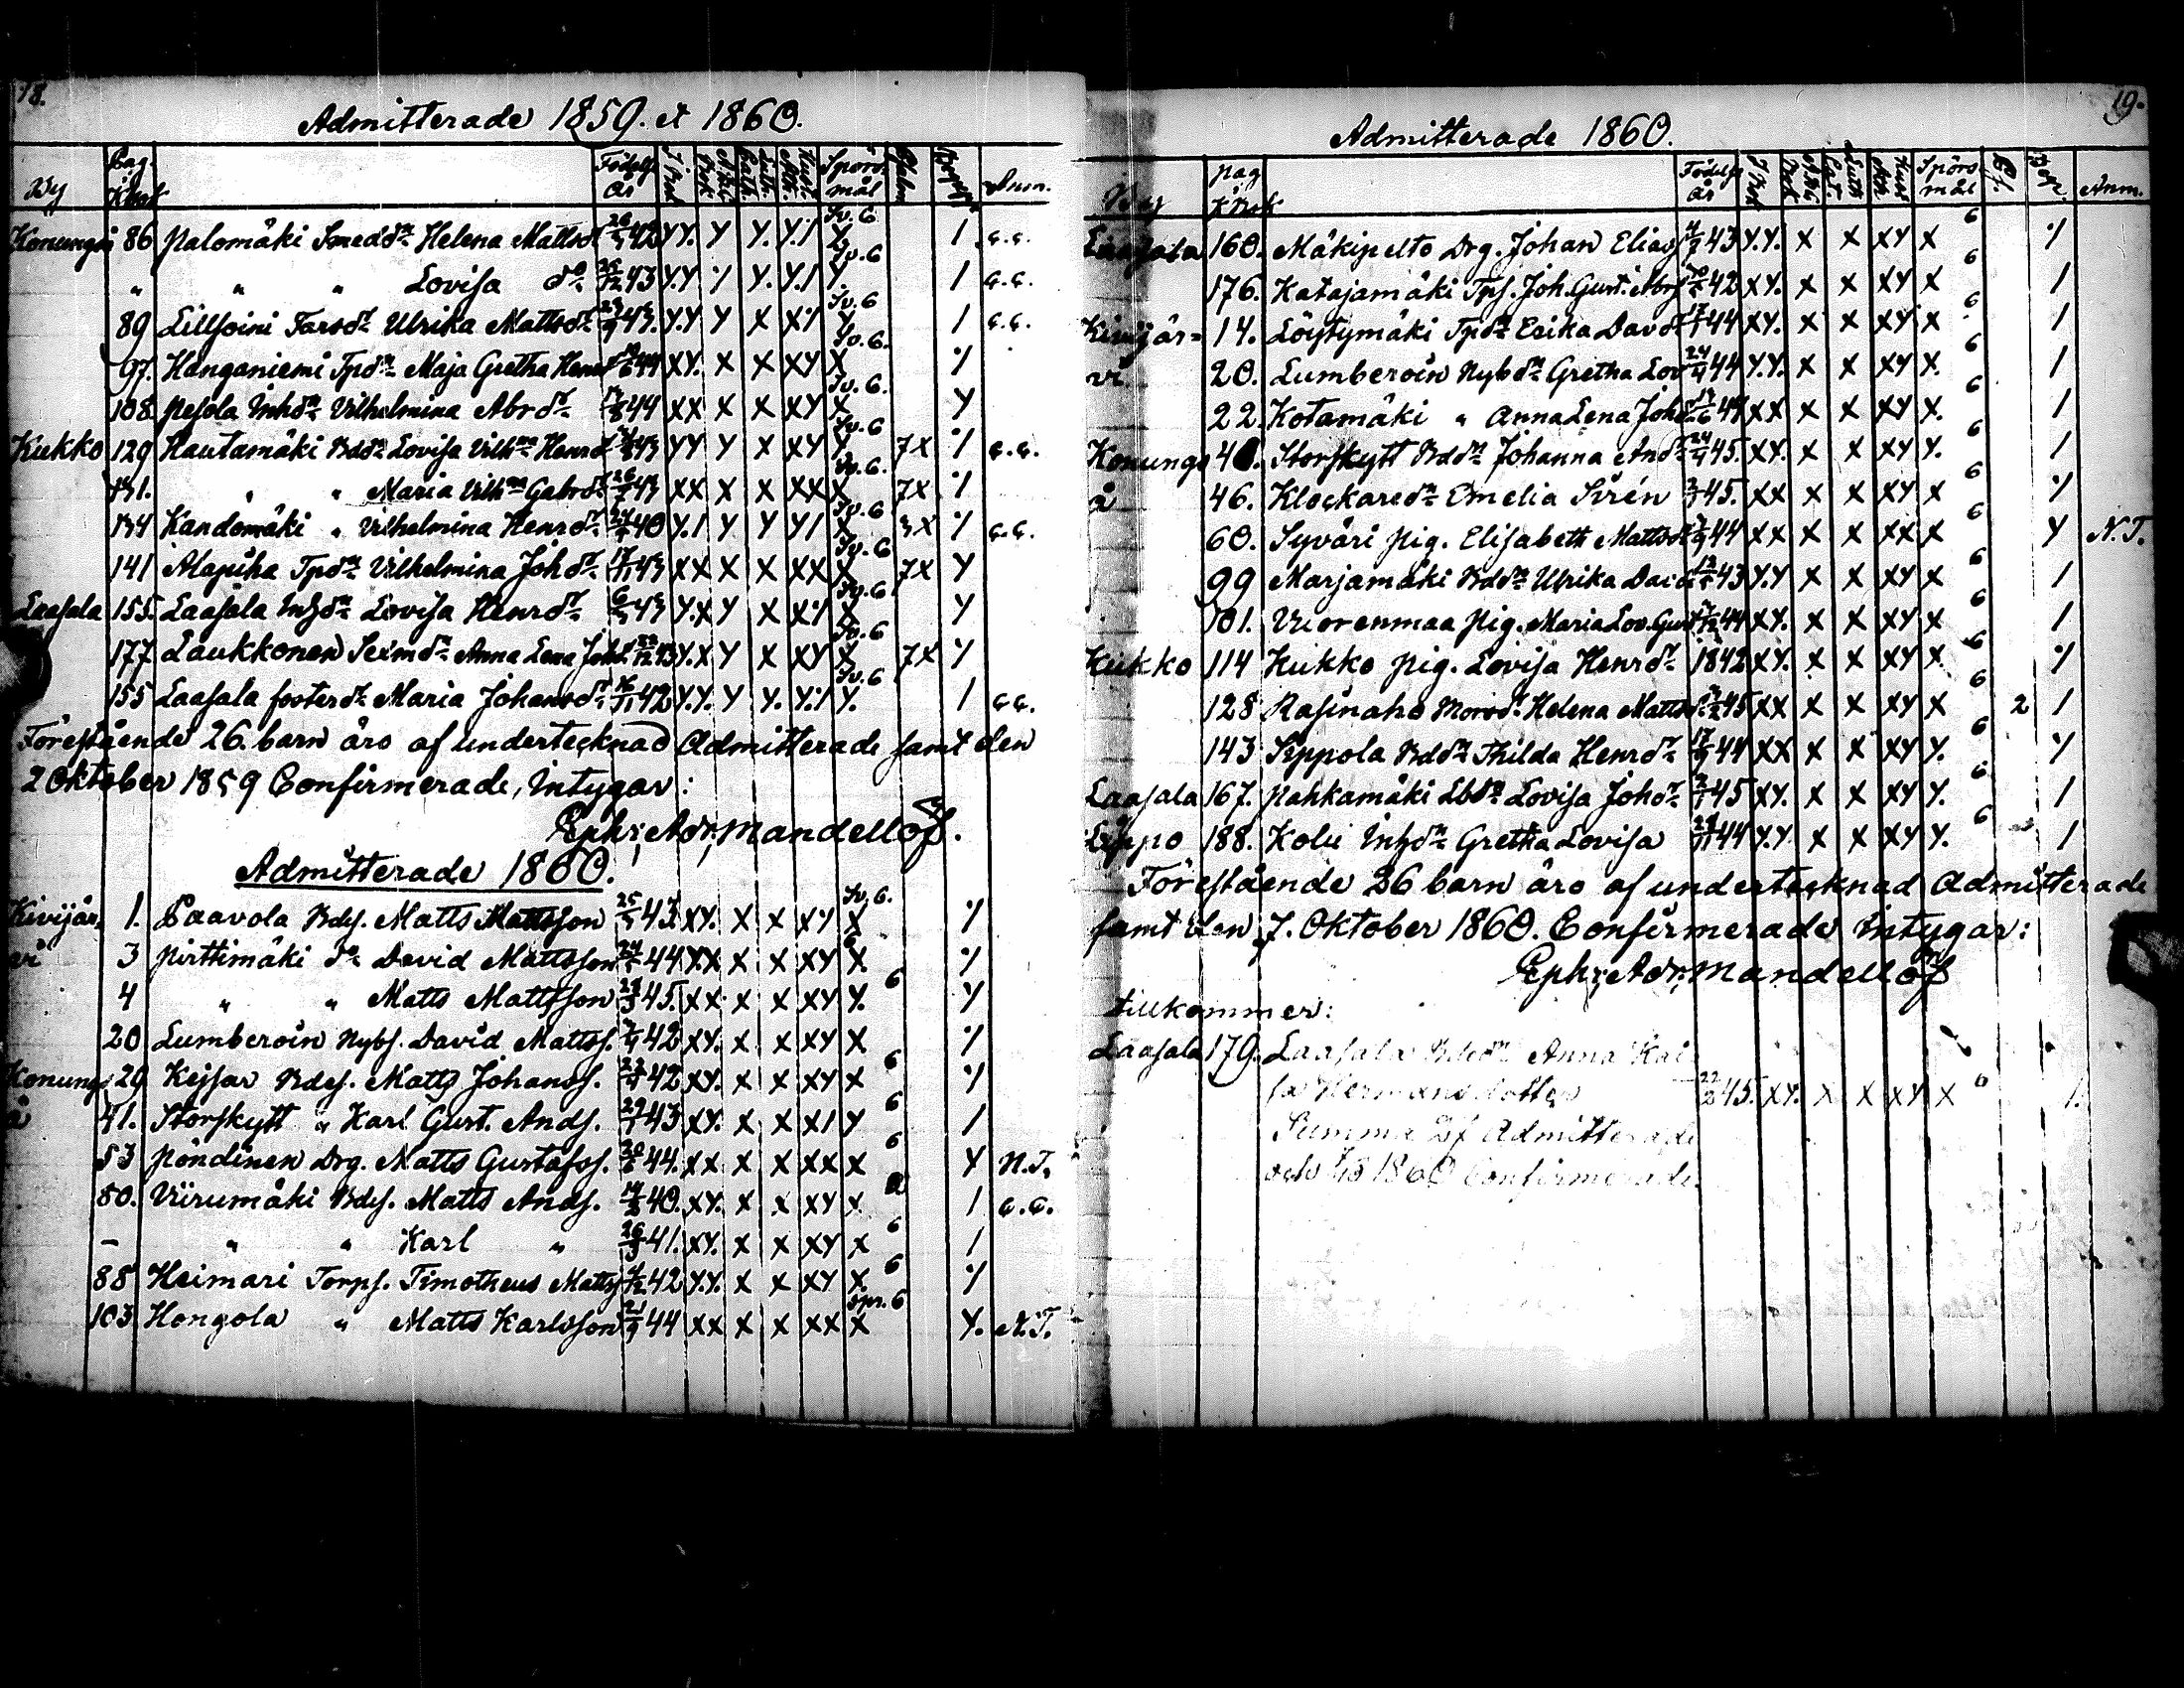 18.
Admitterade 1859. et 1860.
By Pag. Kbok Födelse År I bok Spörsmål Psalm Begrp Anm.
Konungså 86 Palomäki Smedd:r Helena Mattsd:r 42 Y Y. Y Y. Y./ Y. Sv. 6 / c.c.
" " " Lovisa d:o 43 Y.Y / Y. Y./ Y. Sv. 6 / c.c.
89 Lillsoini Tarsd:r Ulrika Mattsd:r 43. Y.Y Y X X/ Y Sv. 6 / c.c.
97. Hanganiemi Tpd:r Maja Gretha Henrd 44 XY. X X XY X Sv. 6. ·/.
108 Pesola Inhd:r Vilhelmina Abrd:r 44 XX X X XY X Sv. 6. Y
Kukko 129 Hautamäki Bdd:r Lovisa Vilh:na Henrd 43 YY Y X XY Y. Sv. 6 7X ·/. c.c.
131. " " Maria Vilh:na Gabrd:r 43 XX X X XX X Sv. 6. 7X ·/.
134 Kandomäki " Vilhelmina Henrd:r 40 Y./ Y Y Y/ X Sv. 6 3X ·/. c.c.
141 Alapiha Tpd:r Vilhelmina Johd:r 17/11 43 XX X X XX X Sv. 6 7X Y
Laasala 155. Laasala Inhd:r Lovisa Henrd:r 43 Y.X Y X X·/ X Sv. 6 Y
177 Laukkonen Sexmd:r Anna Lena Johd. 43 Y.X Y X XY X Sv. 6 7X Y
155 Laasala fosterd:r Maria Johansd:r 16/11 42 Y.Y. Y Y. Y./ Y. Sv. 6 / c.c.
Förestående 26. barn äro af undertecknad Admitterade samt den
2 Oktober 1859 Confirmerade, Intygar:
Eph: Adr: Mandellöf.
Admitterade 1860.
Kivijär- 1. Paavola Bdes. Matts Mattsson 25/5 43. XY. X X XY X Sv. 6. ·/.
vi 3 Pirttimäki d:o David Mattsson 44 XX X X XY X 6 ·/.
4 " " Matts Mattsson 45. XX X X XY Y. 6 ·/.
20 Lumberoin Nybs. David Mattss. 42 XY. X X XY X ·/.
Konungs 29 Kejsar Bdes. Matts Johanss. 42 XY. X X XY X 6 ·/.
å 41. Storskytt " Karl Gust. Ands. 43 XY. X X X/ Y 6 /
53 Pöndinen Drg. Matts Gustafss. 44. XX X X XX X 6 Y N.T.
80. Viirumäki Bdes. Matts Ands. 40. XY. X X XY X / c.c.
— " " Karl " 26/3 41. XY. X X XY X 6 /
88 Heimari Torps. Timotheus Matts 42 Y.Y. X X XY X 6 ·/.
103 Hongola " Matts Karlsson 21/9 44 XX X X XX X Spr. 6 Y. N.T.
19.
Admitterade 1860.
By Pag Kbok Födelse År Spörsmål Ps. Begr. Anm.
Laasala 160. Mäkipelto Drg. Johan Elias 43 Y.Y. X X XY X 6 ·/.
176. Katajamäki Tps. Joh. Gust. Abrs 42 XY. X X XY X 6 /
Kivijär= 14. Löytymäki Tpd:r Erika Davd:r 44 XY. X X XY X 6 /
vi 20. Lumberoin Nybd:r Gretha Lov 44 Y.Y. X X XY X. 6 /
22 Kotamäki " Anna Lena Johd 44 XX X X XY X. 6 /
Konungs 4 . Storskytt Bdd:r Johanna And:r 45. XY. X X XY Y. 6 /
å 46. Klockared:r Emelia Sirén 45. XX X X XY X 6 ·/.
60. Syväri Pig. Elisabeth Mattsd:r 44 XX X X XX X 6 Y N.T.
99 Marjamäki Bdd:r Ulrika Davd 43 Y.Y X X XY X 6 /
101. Vuorenmaa Pig. Maria Lov. Gust 44 XY. X X XY X 6 /
Kukko 114 Kukko Pig. Lovisa Henrd:r 1842 XY. X X XY X 6 ·/.
128 Rasinaho Morsd:r Helena Mattsd 45 XX X X XY X 6 2 /
143 Seppola Bdd:r Thilda Henrd:r 17/9 44 XX X X XY Y. 6 ·/.
Laasala 167. Pahkamäki Lbd:r Lovisa Johd:r 45 XY. X X XY Y. 6 /
Leppo 188. Kolu Inhd:r Gretha Lovisa 44 Y.Y X X XY Y. 6 /
Förestående 26 barn äro af undertecknad Admitterade
samt den 7. Oktober 1860. Confirmerade Intygar:
Eph: Adr: Mandellöf
tillkommer:
Laasala 179. Laasala Bded:r Anna Kai-
sa Hermansdotter 22/2 45. XY. X X XY X 6 /.
Summa Admitterade
och 1860 Confirmerade.